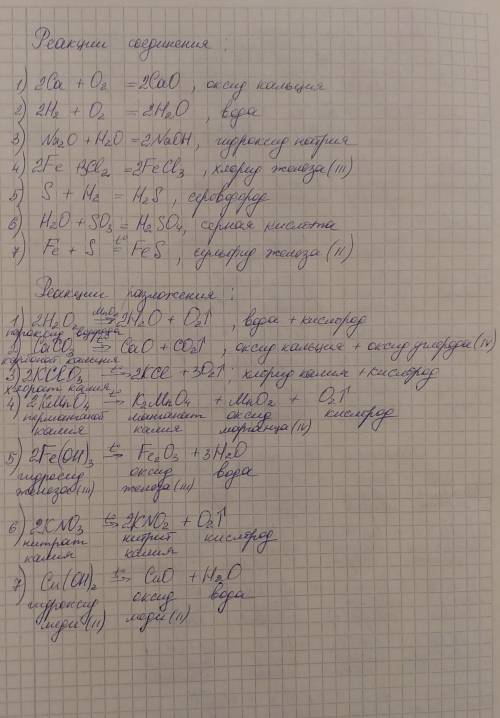 Реакции соединения:
1) 2Ca + O₂ = 2CaO, оксид кальция
2) 2H₂ + O₂ = 2H₂O, вода
3) Na₂O + H₂O = 2NaOH, гидроксид натрия
4) 2Fe + 3Cl₂ = 2FeCl₃, хлорид железа (III)
5) S + H₂ = H₂S, сероводород
6) H₂O + SO₃ = H₂SO₄, серная кислота
7) Fe + S t°= FeS, сульфид железа (II)
Реакции разложения:
1) 2H₂O₂ MnO₂→ 2H₂O + O₂↑, вода + кислород
пероксид водорода
2) CaCO₃ t°→ CaO + CO₂↑, оксид кальция + оксид углерода (IV)
карбонат кальция
3) 2KClO₃ t°→ 2KCl + 3O₂↑; хлорид калия + кислород
хлорат калия
4) 2KMnO₄ t°→ K₂MnO₄ + MnO₂ + O₂↑
перманганат манганат оксид кислород
калия калия марганца (IV)
5) 2Fe(OH)₃ t°→ Fe₂O₃ + 3H₂O
гидроксид оксид вода
железа (III) железа (III)
6) 2KNO₃ t°→ 2KNO₂ + O₂↑
нитрат нитрит кислород
калия калия
7) Cu(OH)₂ t°→ CuO + H₂O
гидроксид оксид вода
меди (II) меди (II)